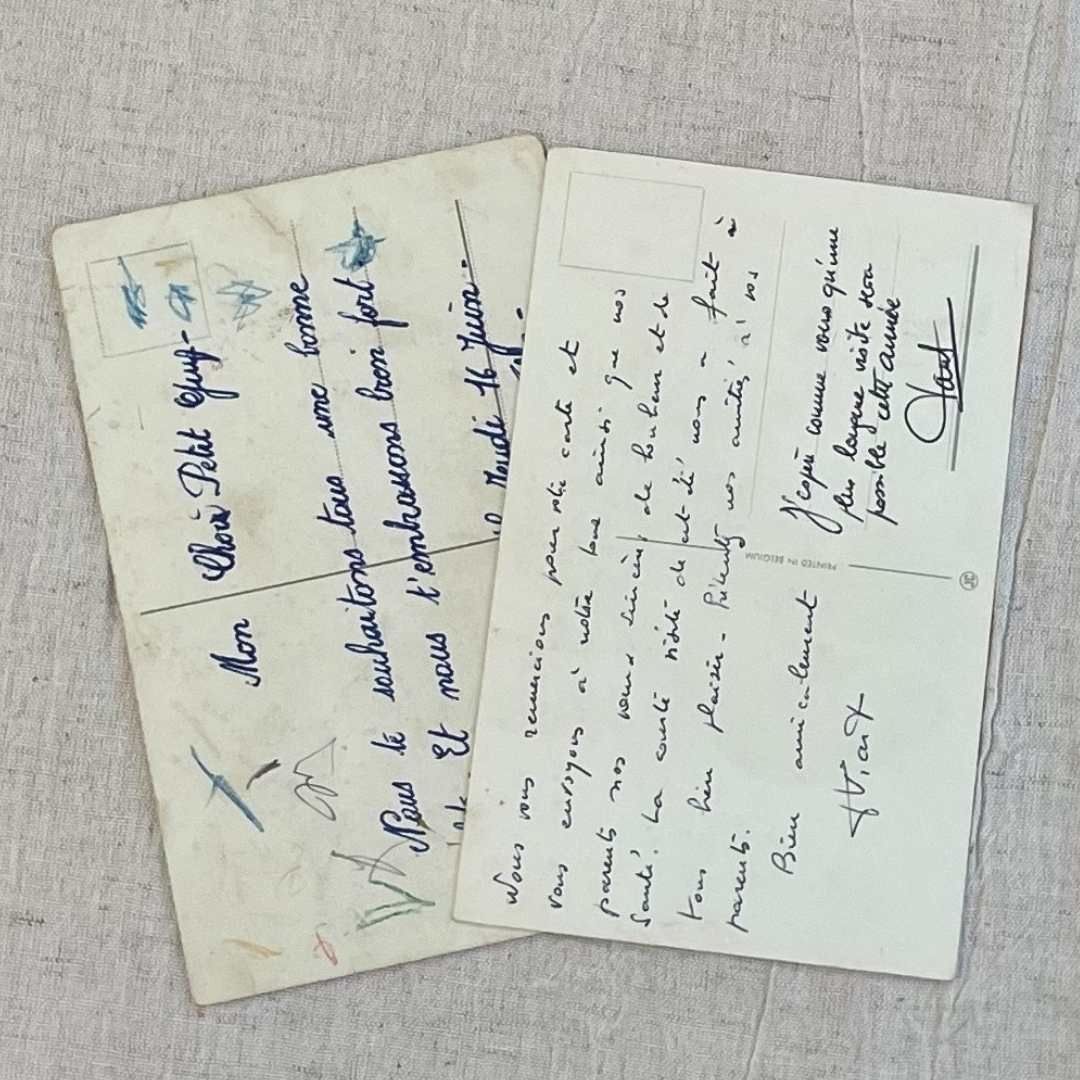 Mon Cher Petit Guy-
Nous te souhaitons tous une bonne
Et nous t'embrassons bien fort
Jeudi 16 Juin.
Nous vous remercions pour votre carte et
vous envoyons à notre tour ainsi que nos
parents nos vœux sincères de bonheur et de
Santé. La courte visite de cet été nous a fait à
tous bien plaisir. Présentez nos amitiés à vos
parents.
Bien amicalement
J'espère comme vous qu'une
plus longue visite sera
possible cette année
PRINTED IN BELGIUM